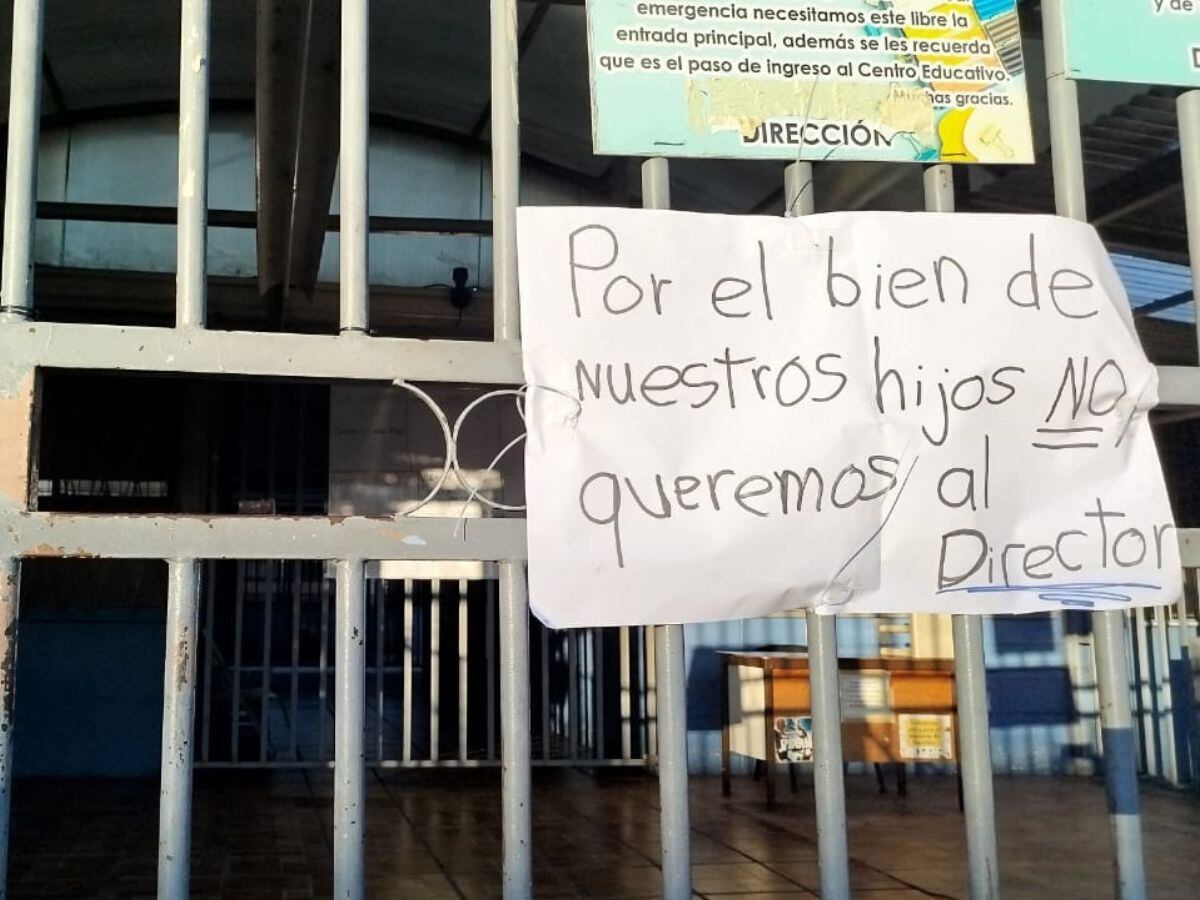 emergencia necesitamos este libre la
entrada principal, además se les recuerda
que es el paso de ingreso al Centro Educativo.
Muchas gracias.
DIRECCIÓN
y de
Por el bien de
nuestros hijos NO,
queremos al
Director